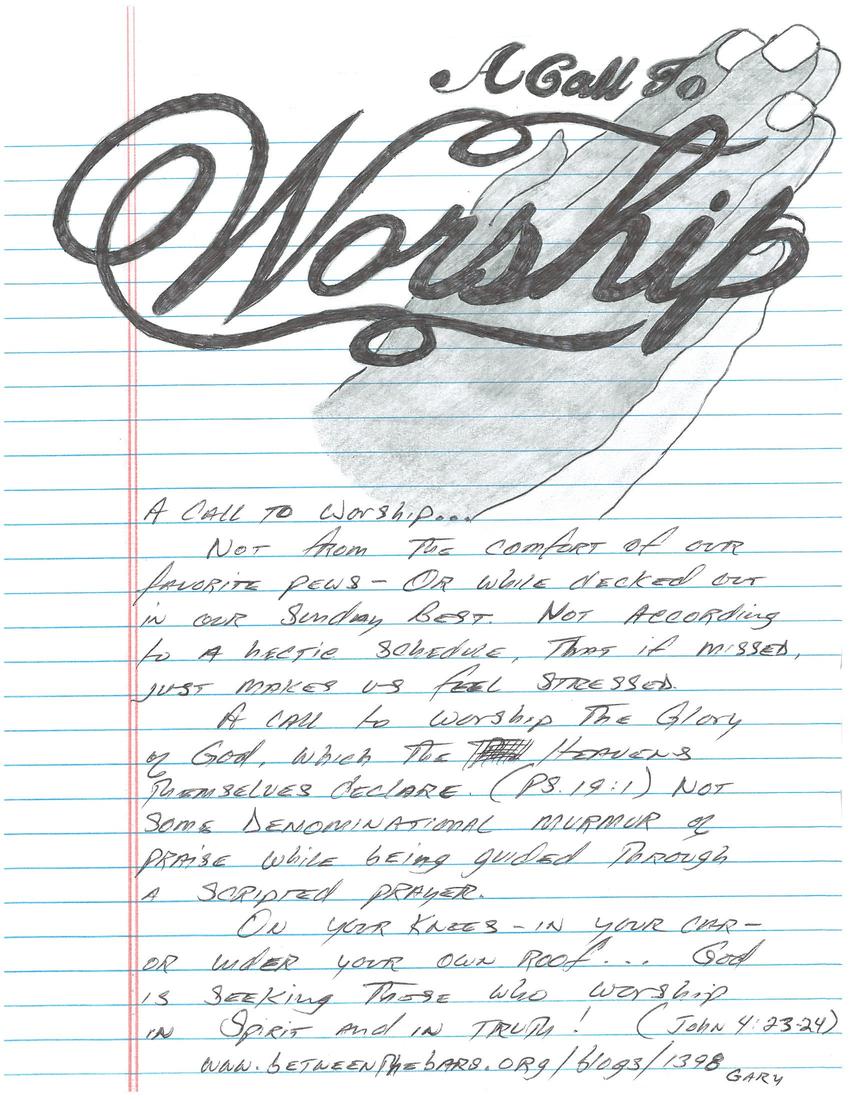 A Call To
Worship
A CALL TO Worship...
NOT from THE COMFORT of OUR
FAVORITE PEWS - OR while decked out
in our Sunday Best. NOT ACCORDing
to A hectic Schedule, THAT if MISSED,
JUST MAKES US feel STRESSED.
A CALL to Worship THE Glory
of God, which THE HEAVENS
THEMSELVES declARE. (PS. 19:1) NOT
SOME DENOMINATIONAL MURMUR of
PRAISE while being guided Through
A SCRIPTED PRAYER.
ON YOUR KNEES - IN YOUR CAR -
OR under YOUR OWN ROOf... God
IS SEEKing THOSE who worship
IN Spirit and IN TRUTH! (John 4:23-24)
www.betweenthebars.org/blogs/1398
GARY